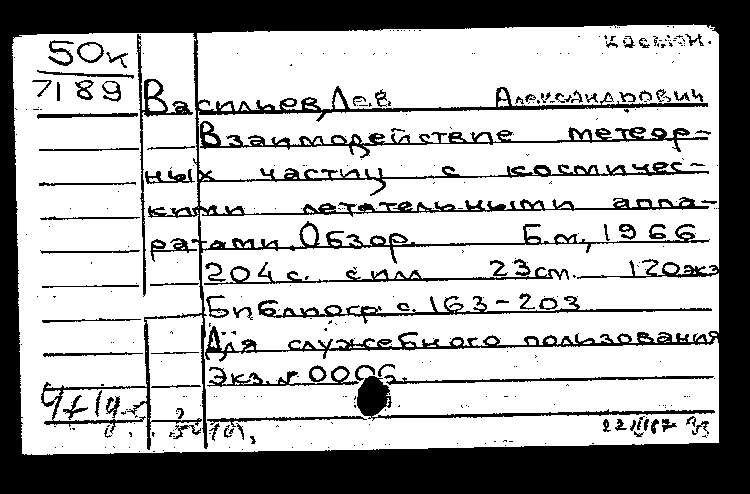 50к
7189
Васильев, Лев Александрович
Взаимодействие метеор-
ных частиц с космичес-
кими летательными аппа-
ратами. Обзор. Б.м., 1966
204 с. с илл 23см. 120экз
Библиогр. с. 163-203
Для служебного пользования
Экз. № 0006.